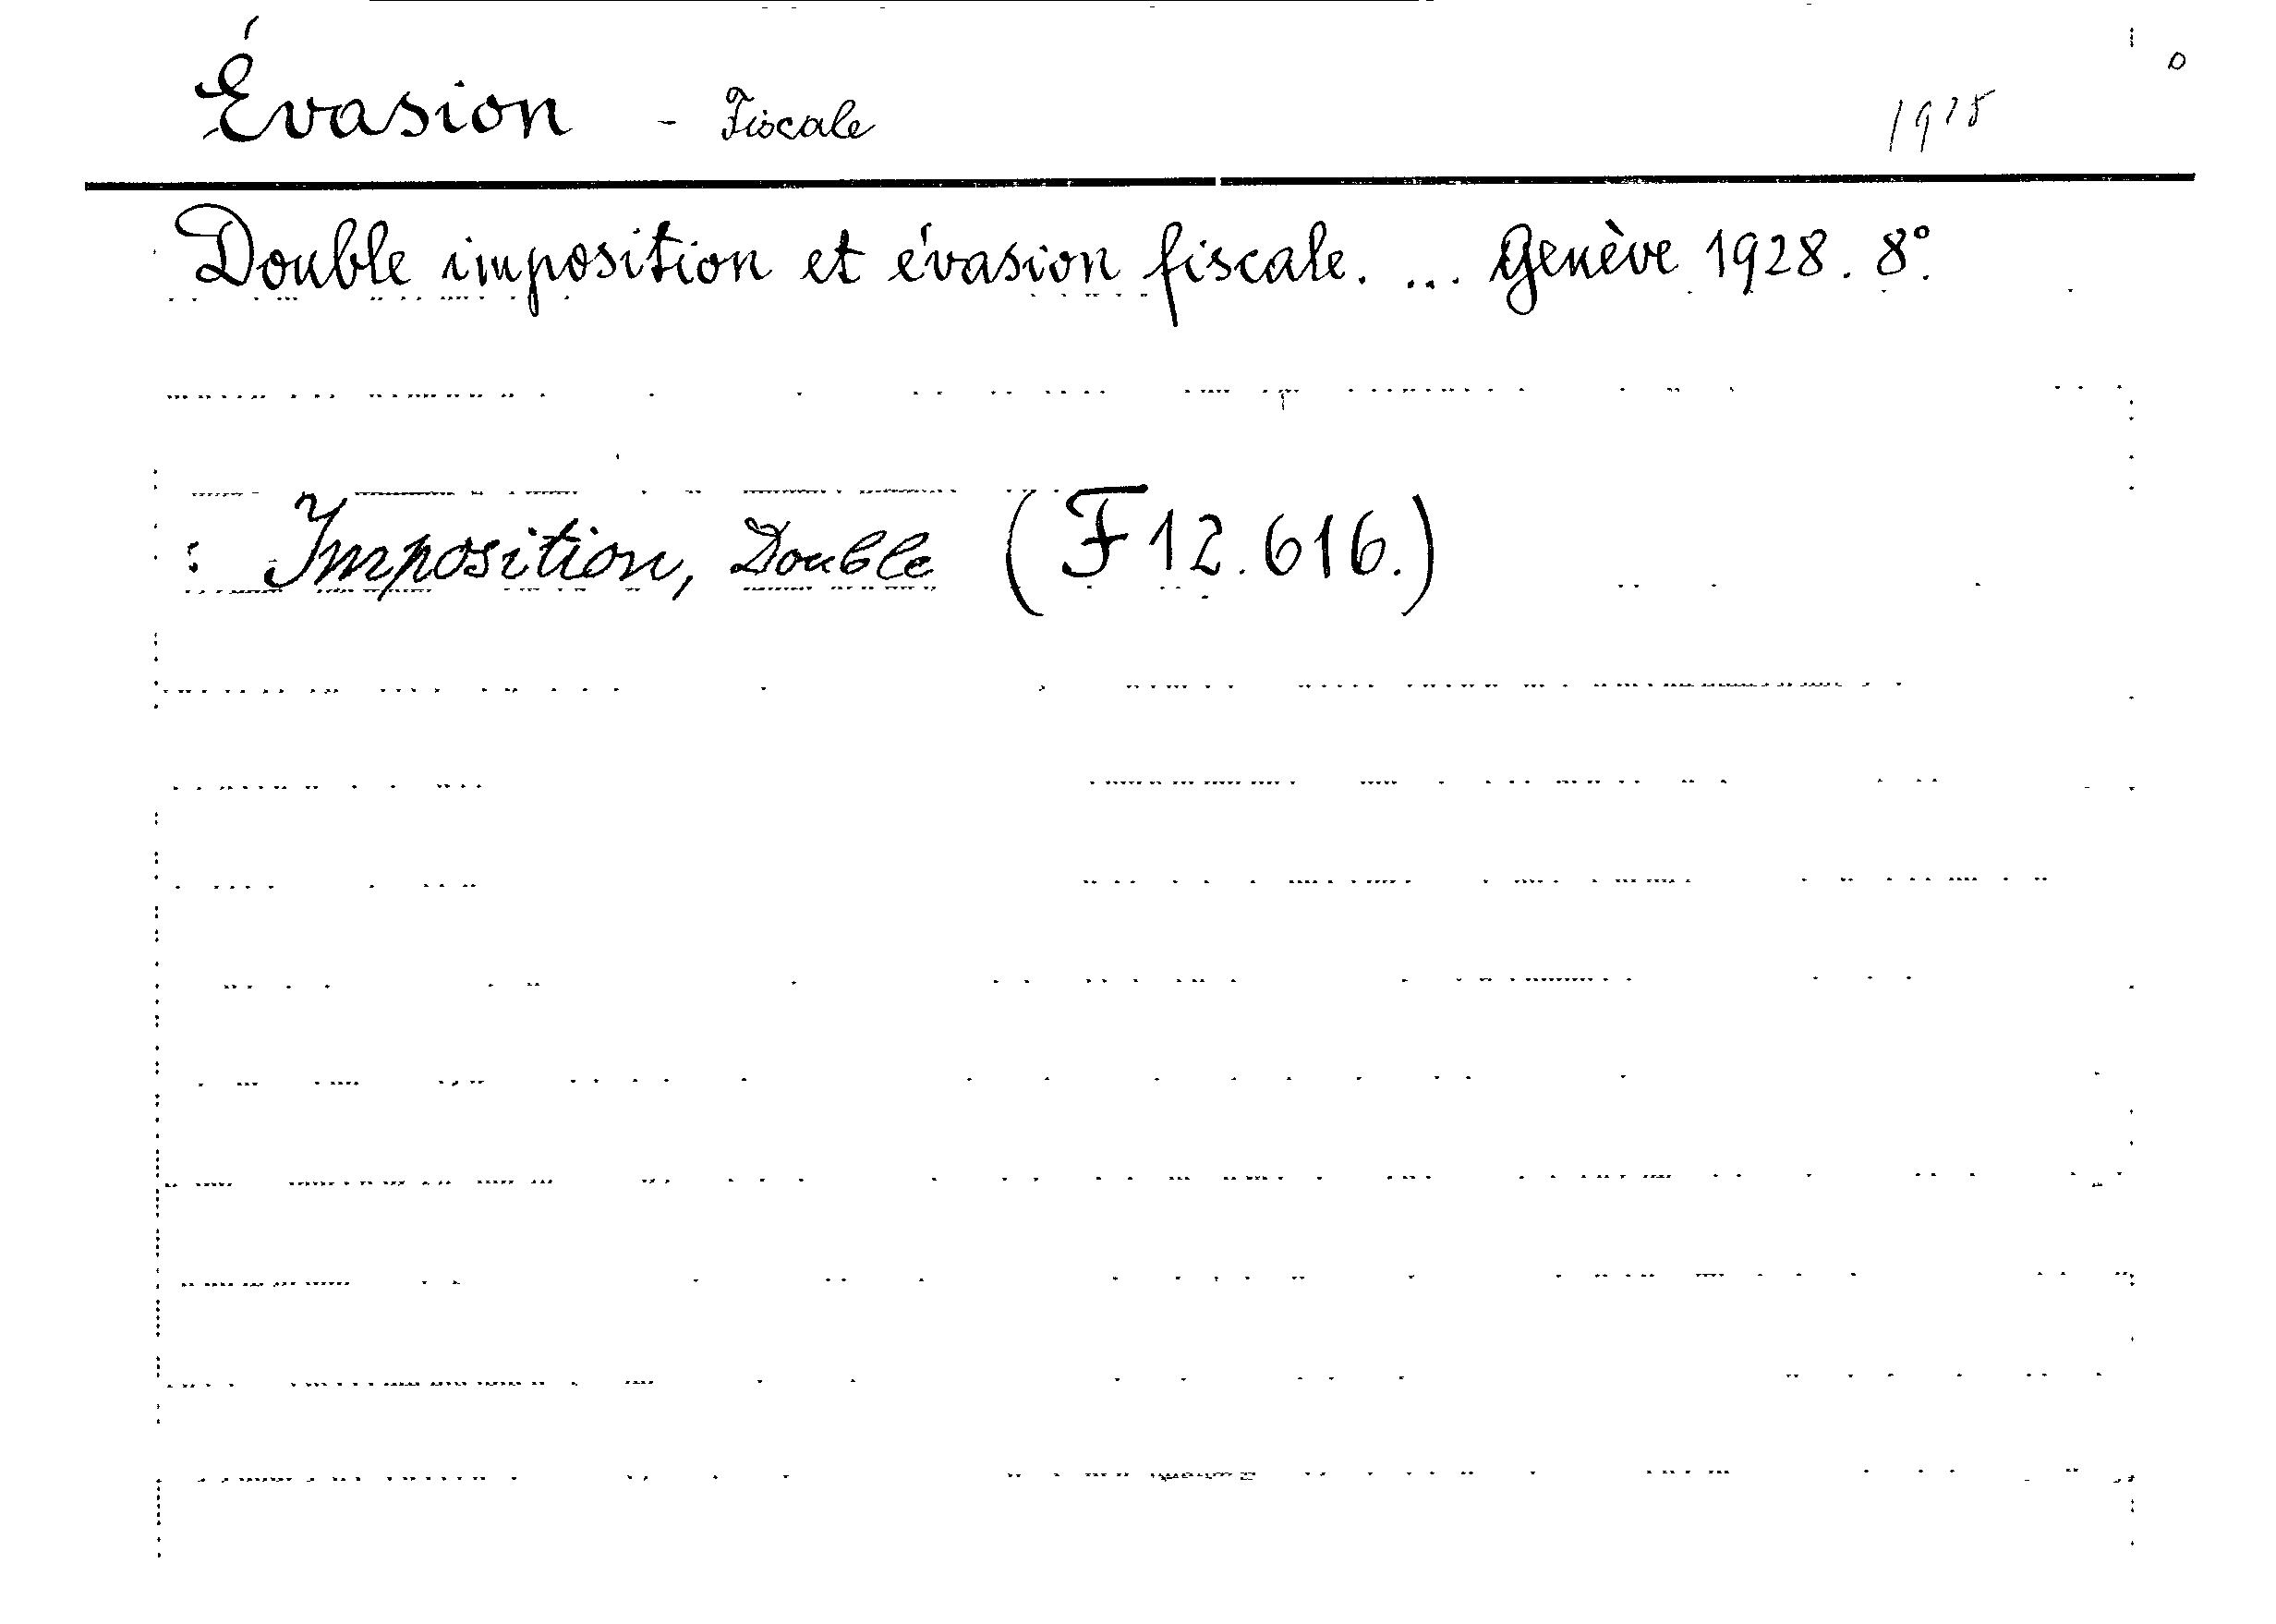 Évasion - Fiscale
Double imposition et évasion fiscale. ... Genève 1928. 8°.
: Imposition, Double (F 12.616.)